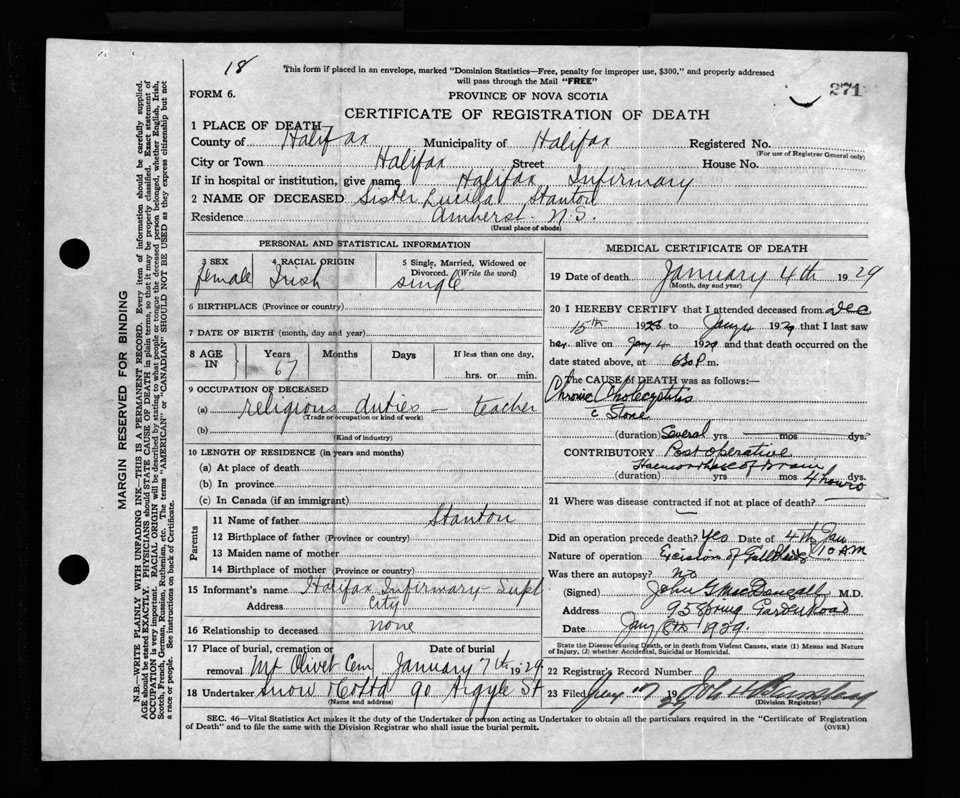 18
This form if placed in an envelope, marked "Dominion Statistics—Free, penalty for improper use, $300," and properly addressed
will pass through the Mail "FREE"
271
FORM 6.
PROVINCE OF NOVA SCOTIA
CERTIFICATE OF REGISTRATION OF DEATH
1 PLACE OF DEATH
County of Halifax Municipality of Halifax Registered No.
(For use of Registrar General only)
City or Town Halifax Street House No.
If in hospital or institution, give name Halifax Infirmary
2 NAME OF DECEASED Sister Lucilla Stanton
Residence Amherst N.S.
(Usual place of abode)
PERSONAL AND STATISTICAL INFORMATION
3 SEX 4 RACIAL ORIGIN 5 Single, Married, Widowed or
Divorced. (Write the word)
female Irish single
6 BIRTHPLACE (Province or country)
7 DATE OF BIRTH (month, day and year)
8 AGE IN Years Months Days If less than one day,
67 hrs. or min.
9 OCCUPATION OF DECEASED
(a) religious duties — teacher
(Trade or occupation or kind of work)
(b)
(Kind of industry)
10 LENGTH OF RESIDENCE (in years and months)
(a) At place of death
(b) In province
(c) In Canada (if an immigrant)
Parents
11 Name of father Stanton
12 Birthplace of father (Province or country)
13 Maiden name of mother
14 Birthplace of mother (Province or country)
15 Informant's name Halifax Infirmary - Supt
Address City
16 Relationship to deceased none
17 Place of burial, cremation or Date of burial
removal Mt Olivet Cem January 7th 1929
18 Undertaker Snow & Co Ltd 90 Argyle St
(Name and address)
MEDICAL CERTIFICATE OF DEATH
19 Date of death January 4th 1929
(Month, day and year)
20 I HEREBY CERTIFY that I attended deceased from Dec
15th 1928 to Jany 4 1929 that I last saw
her alive on Jany 4 1929 and that death occurred on the
date stated above, at 6 30 P m.
The CAUSE OF DEATH was as follows:—
Chronic Cholecystitis
c Stone
(duration) Several yrs mos dys.
CONTRIBUTORY Post operative
Haemorrhage of Brain
(duration) yrs mos 4 hours dys
21 Where was disease contracted if not at place of death?
Did an operation precede death? Yes Date of 4th Jan
10 AM
Nature of operation Excision of Gall Bladder
Was there an autopsy? No
(Signed) John G MacDougall M.D.
Address 95 Spring Garden Road
Date Jany 8th 1929
State the Disease causing Death, or in death from Violent Causes, state (1) Means and Nature
of Injury, (2) whether Accidental, Suicidal or Homicidal.
22 Registrar's Record Number
23 Filed Jany 17 1929 John H
(Division Registrar)
SEC. 46—Vital Statistics Act makes it the duty of the Undertaker or person acting as Undertaker to obtain all the particulars required in the "Certificate of Registration
of Death" and to file the same with the Division Registrar who shall issue the burial permit.
(OVER)
MARGIN RESERVED FOR BINDING
N.B.—WRITE PLAINLY WITH UNFADING INK—THIS IS A PERMANENT RECORD. Every item of information should be carefully supplied.
AGE should be stated EXACTLY. PHYSICIANS should STATE CAUSE OF DEATH in plain terms, so that it may be properly classified. Exact statement of
OCCUPATION is very important. RACIAL ORIGIN will be described by stating to what people or tongue the deceased person belonged, whether English, Irish,
Scotch, French, German, Russian, Ruthenian, etc. The terms "AMERICAN" or "CANADIAN" SHOULD NOT BE USED as they express citizenship but not
a race or people. See instructions on back of Certificate.